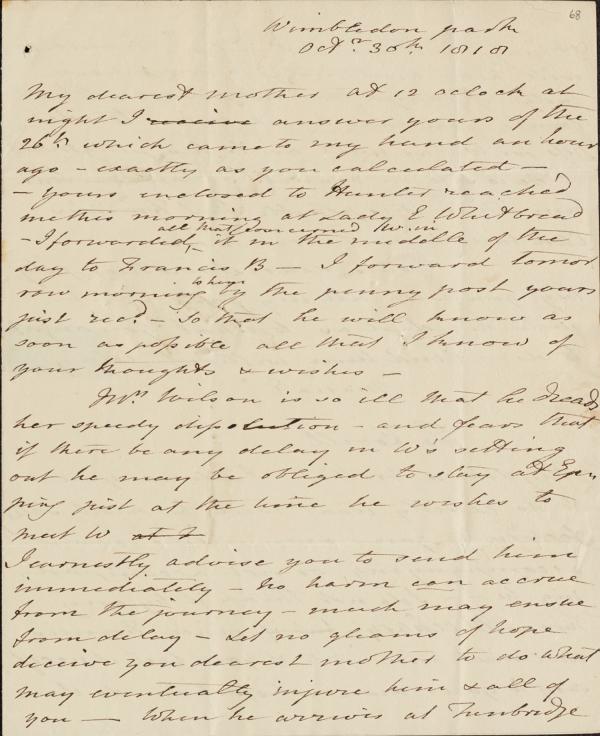 68
Wimbledon park
Octr. 30th. 1818
My dearest mother at 12 oclock at
night I receive answer yours of the
26th. which came to my hand an hour
ago – exactly as you calculated –
– yours inclosed to Hunter reached
me this morning at Lady E Whitbread
all that concerned Wm. in
– I forwarded, it in the middle of the
day to Francis B – I forward tomor
to hugo
row morning by the penny post yours
just recd. – So that he will know as
soon as possible all that I know of
your thoughts & wishes –
Mrs. Wilson is so ill that he dreads
her speedy dissolution – and fears that
if there be any delay in W's setting
out he may be obliged to stay at Epp
ping just at the time he wishes to
meet W at
I earnestly advise you to send him
immediately – no harm can accrue
from the journey – much may ensue
from delay – Let no gleams of hope
decieve you dearest mother to do what
may eventually injure him & all of
you — When he arrives at Tunbridge